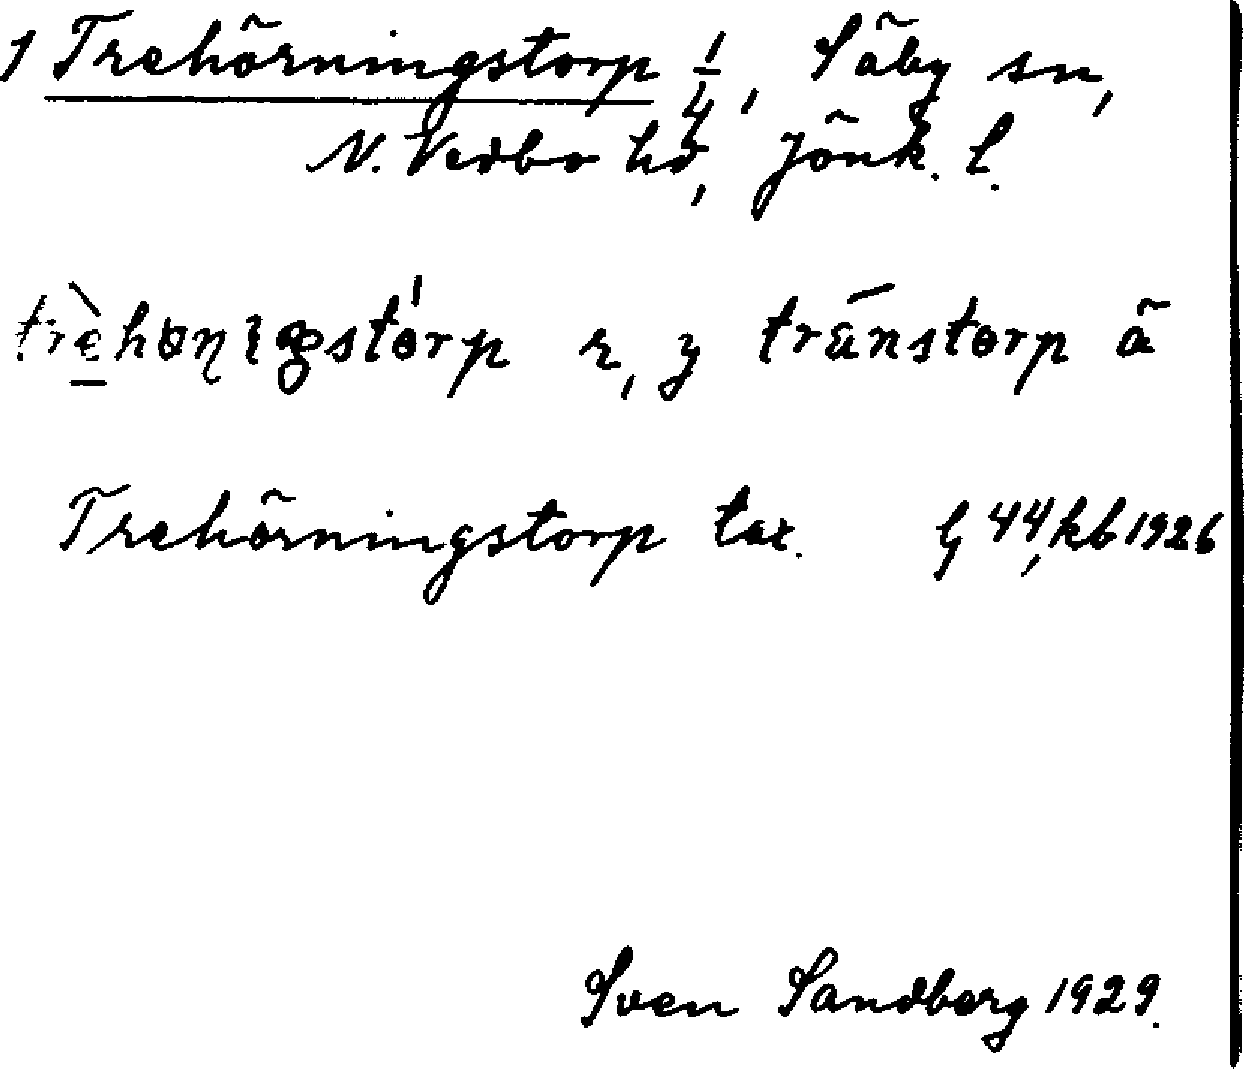 1 Trehörningstorp 1/4, Säby sn,
N. Vedbo hd, Jönk. l.
trèhɵnıgstɵrp r, y tránstɵrp ä
Trehörningstorp tax. G 44, kb 1926
Sven Sandberg 1929.